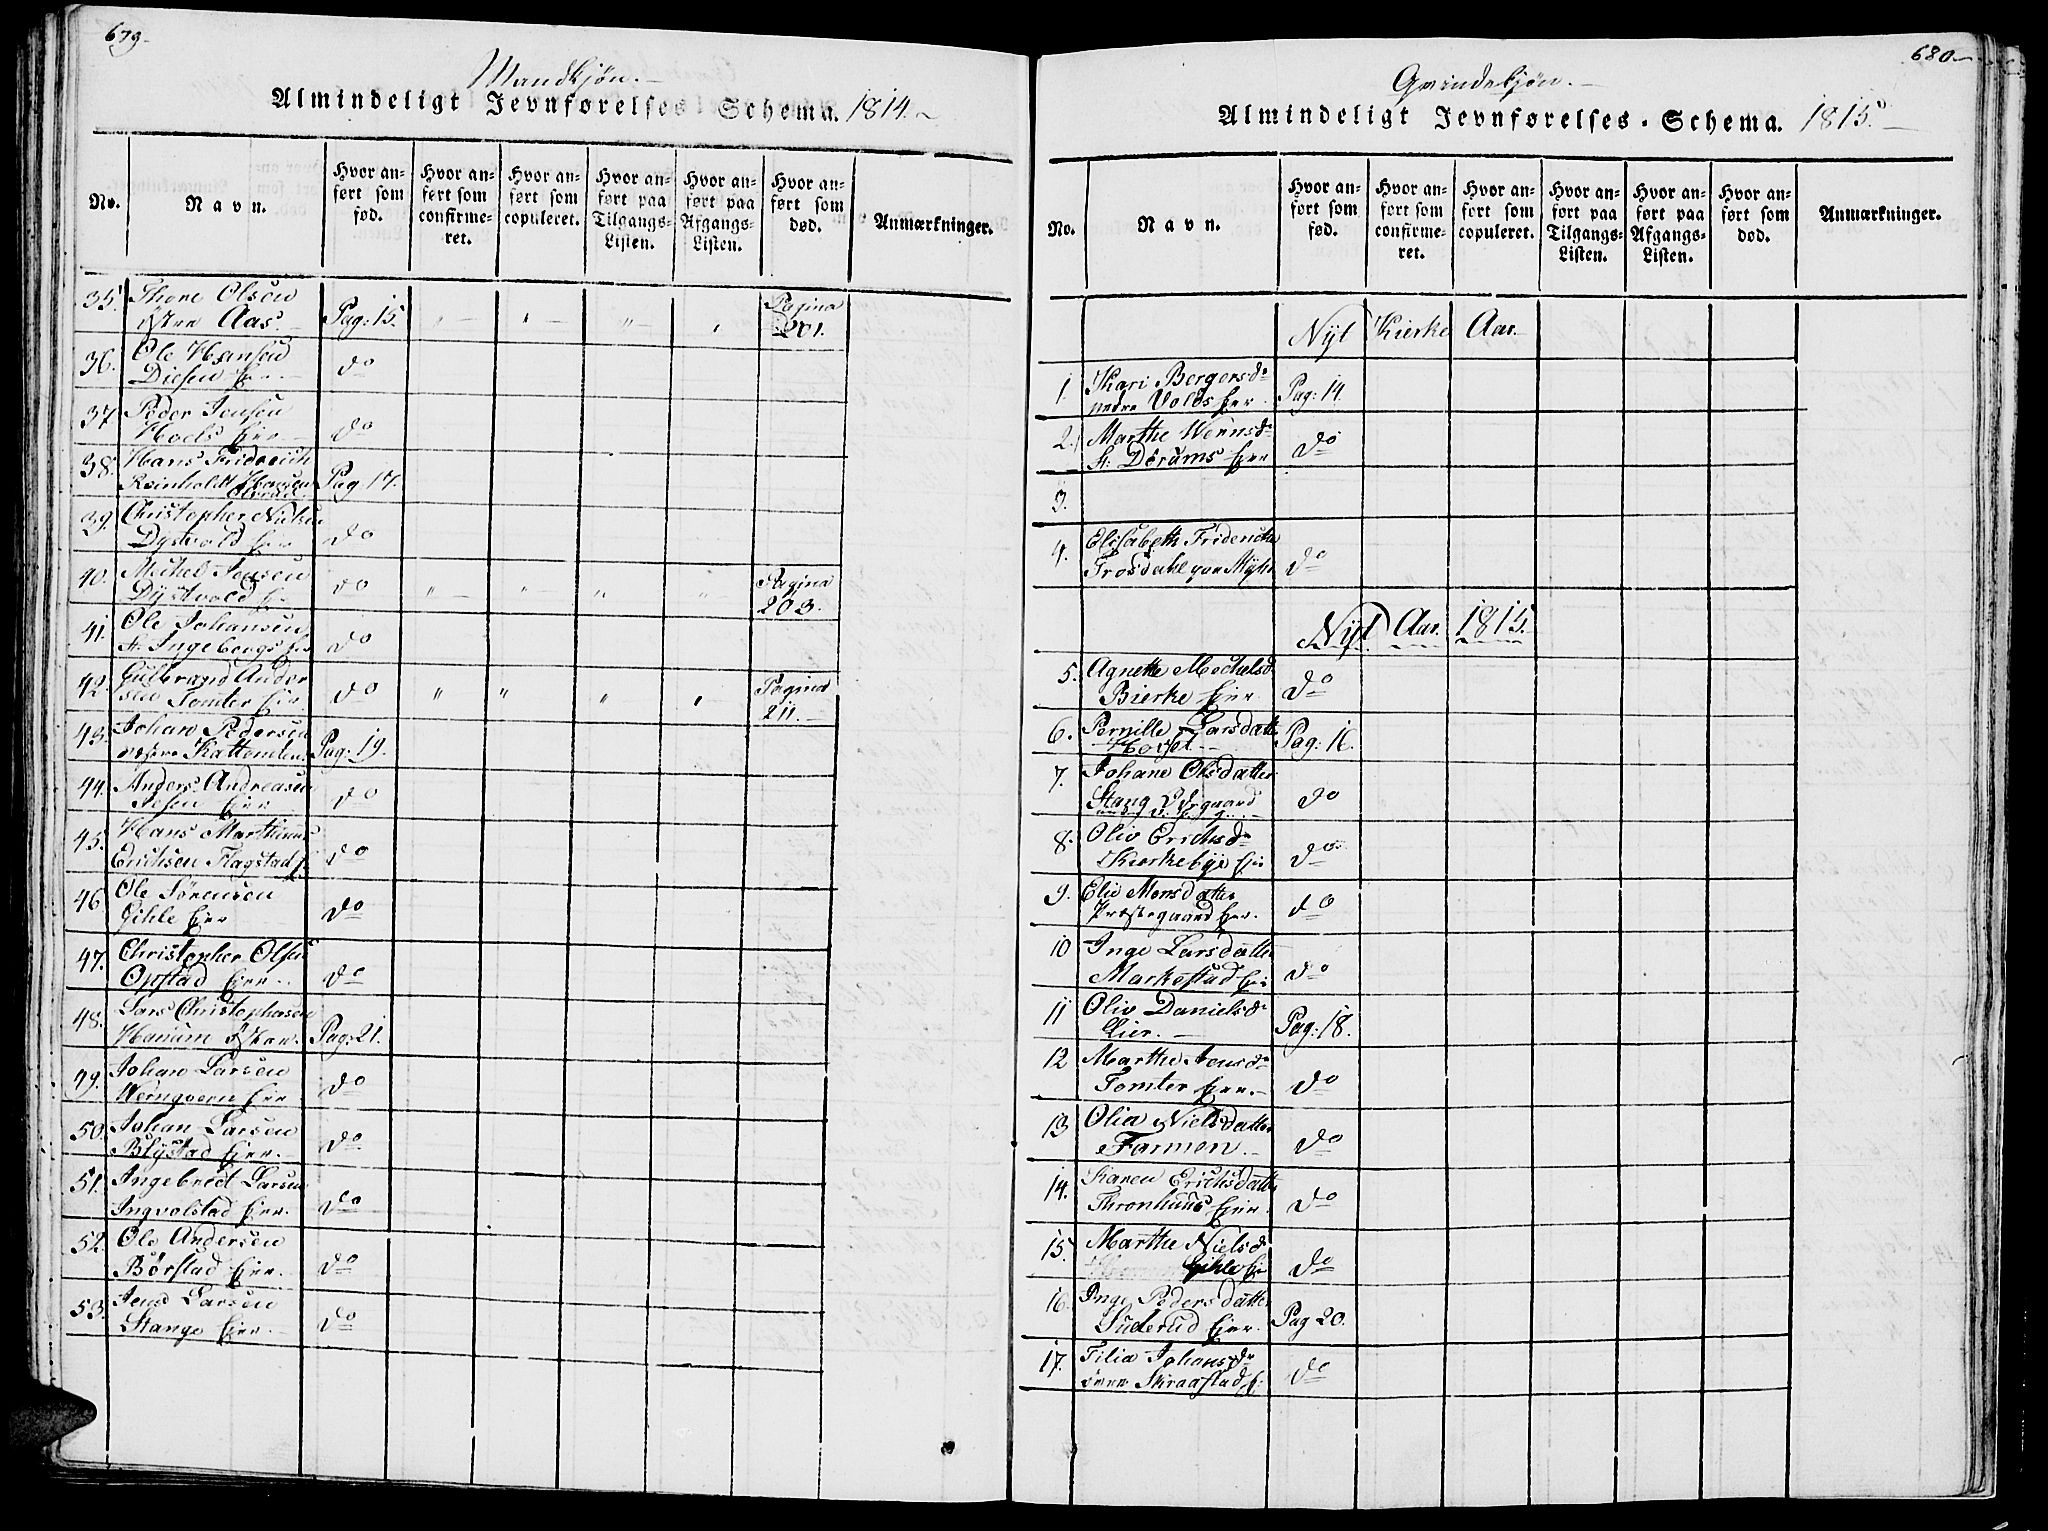 679.
Mandkjøn.
Almindeligt Jevnførelses-Schema. 1814.
No.
Navn.
Hvor an-
ført som
fød.
Hvor an-
ført som
confirme-
ret.
Hvor an-
ført som
copuleret.
Hvor an-
ført paa
Tilgangs-
Listen.
Hvor an-
ført paa
Afgangs-
Listen.
Hvor an-
ført som
død.
Anmærkninger.
35. Thore Olsen
Aas. Pag: 15. Pagina
201.
36. Ole Hansen
Diesen Eier. do
37. Peder Jensen
Hoels Eier. do
38. Hans Friderich
Reinholdt Hansen Pag 17.
39. Christopher Nielsen
Dystvold Eier do
40. Michel Jensen
Dystvold E. do Pagina
203.
41. Ole Johansen
St. Ingebergs Eie do
42. Gulbrand Ander
sen Tomter Eier do Pagina
211.
43. Johan Pedersen
Kattomten Pag: 19.
44. Anders Andreasen
Eier do
45. Hans Marthinus
Erichsen Flagstad E. do
46 Ole Sørensen
Gihle Eier do
47. Christopher Olsen
Opstad Eier. do
48. Lars Christophersen
Hanum Pag: 21.
49. Johan Larsen
Eier do
50. Johan Larsen
Blystad Eier. do
51. Ingebret Larsen
Ingvolstad Eier. do
52. Ole Andersen
Børstad Eier. do
53. Jens Larsen
Stange Eier. do
680.
Qvindekjøn.
Almindeligt Jevnførelses-Schema. 1815.
No.
Navn.
Hvor an-
ført som
fød.
Hvor an-
ført som
confirme-
ret.
Hvor an-
ført som
copuleret.
Hvor an-
ført paa
Tilgangs-
Listen.
Hvor an-
ført paa
Afgangs-
Listen.
Hvor an-
ført som
død.
Anmærkninger.
Nyt Kirke Aar.
1. Kari Bergersdr
nedre Volds Eier. Pag: 14.
2. Marthe
St: Dørums Eier do
3.
4. Elisabeth Fridericha
Frosdahl paa Myhr do
Nyt Aar. 1815.
5. Agnethe Michelsd
Bierke Eier. do
6. Pernille Larsdatt
Horsel Pag: 16.
7. Johane Olsdatter
Stang do
8. Oliv Erichsdr
Kirkebye Eie do
9. Eliv Monsdatter
Præstegaard Eier. do
10 Inge Larsdatter
Markestad Eie do
11 Oliv Danielsdr
Lier. Pag: 18.
12 Marthe Jensdr
Tomter Eier. do
13 Olia Nielsdatter
Farmen. do
14. Karen Erichsdatter
Thronhuus Eier. do
15. Marthe Nielsd
Gihle Ei do
16. Inge Pedersdatter
Suderud Eier. Pag 20.
17. Tilia Johansdr
Skraastad E: do